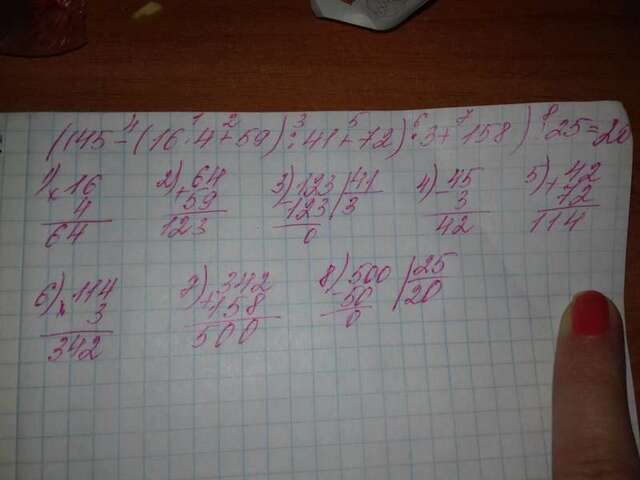 ((45 - (16 · 4 + 59) : 41 + 72) · 3 + 158) : 25 = 20
1) × 16 4 64 2) + 64 59 123 3) - 123 | 41 123 | 3 0 4) - 45 3 42 5) + 42 72 114
6) × 114 3 342 7) + 342 158 500 8) - 500 | 25 50 | 20 0